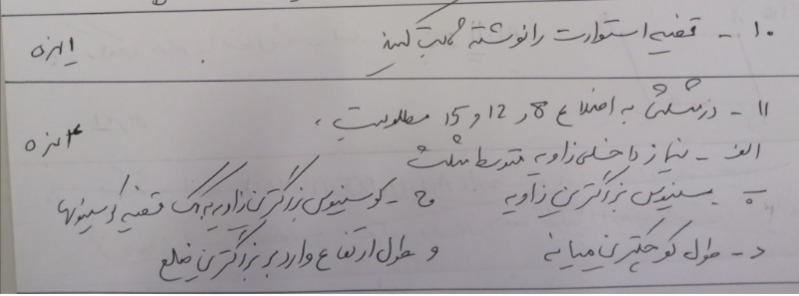 ۱۰ - قضیه استوارت را نوشته ثابت کنید ۱ نمره
۱۱ - در مثلثی به اضلاع 8 و 12 و 15 مطلوبست،
الف - نیمساز داخلی زاویه متوسط مثلث ۴ نمره
ب - سینوس بزرگترین زاویه ج - کوسینوس بزرگترین زاویه به کمک قضیه کوسینوسها
د - طول کوچکترین میانه و طول ارتفاع وارد بر بزرگترین ضلع